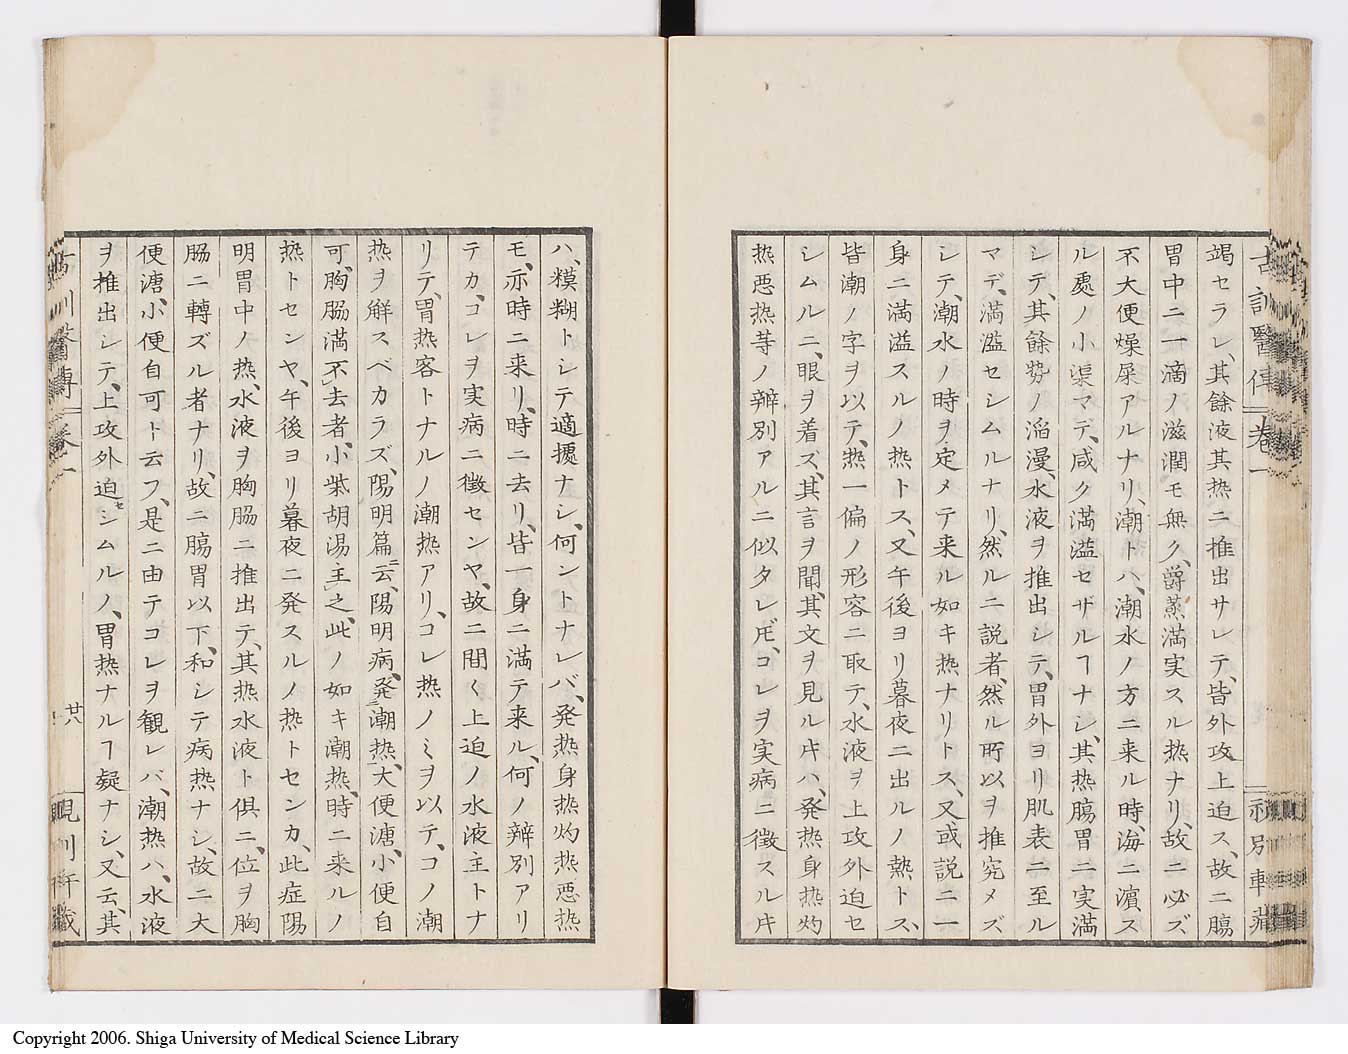 古訓醫傳 卷一
竭セラレ、其餘液其热ニ推出サレテ、皆外攻上迫ス、故ニ腸
胃中ニ一滴ノ滋潤モ無ク、爵蒸満実スル热ナリ、故ニ必ズ
不大便燥屎アルナリ、潮トハ、潮水ノ方ニ来ル時、海ニ濵ス
ル處ノ小渠マデ、咸ク満溢セザルヿナシ、其热腸胃ニ実満
シテ、其餘勢ノ滔漫、水液ヲ推出シテ、胃外ヨリ肌表ニ至ル
マデ、満溢セシムルナリ、然ルニ説者、然ル所以ヲ推究メズ
シテ、潮水ノ時ヲ定メテ来ル如キ热ナリトス、又或説ニ一
身ニ満溢スルノ热トス、又午後ヨリ暮夜ニ出ルノ熱トス、
皆潮ノ字ヲ以テ、热一偏ノ形容ニ取テ、水液ヲ上攻外迫セ
シムルニ、眼ヲ着ズ、其言ヲ聞、其文ヲ見ル片ハ、発热身热灼
热悪热等ノ辨別アルニ似タレ𪜈、コレヲ実病ニ徴スル片
ハ、糢糊トシテ適據ナシ、何ントナレバ、発热身热灼热悪热
モ、亦時ニ来リ、時ニ去リ、皆一身ニ満テ来ル、何ノ辨別アリ
テカ、コレヲ実病ニ徴センヤ、故ニ間〱上迫ノ水液主トナ
リテ、胃热客トナルノ潮热アリ、コレ热ノミヲ以テ、コノ潮
热ヲ解スベカラズ、陽明篇ニ云、陽明病、発潮热、大便溏、小便自
可、胸脇満不去者、小柴胡湯主之、此ノ如キ潮热、時ニ来ルノ
热トセンヤ、午後ヨリ暮夜ニ発スルノ热トセンカ、此症陽
明胃中ノ热、水液ヲ胸脇ニ推出テ、其热水液ト倶ニ、位ヲ胸
脇ニ轉ズル者ナリ、故ニ腸胃以下、和シテ病热ナシ、故ニ大
便溏、小便自可ト云フ、是ニ由テコレヲ観レバ、潮热ハ、水液
ヲ推出シテ、上攻外迫セシムルノ、胃热ナルヿ疑ナシ、又云、其
卷一
廿八